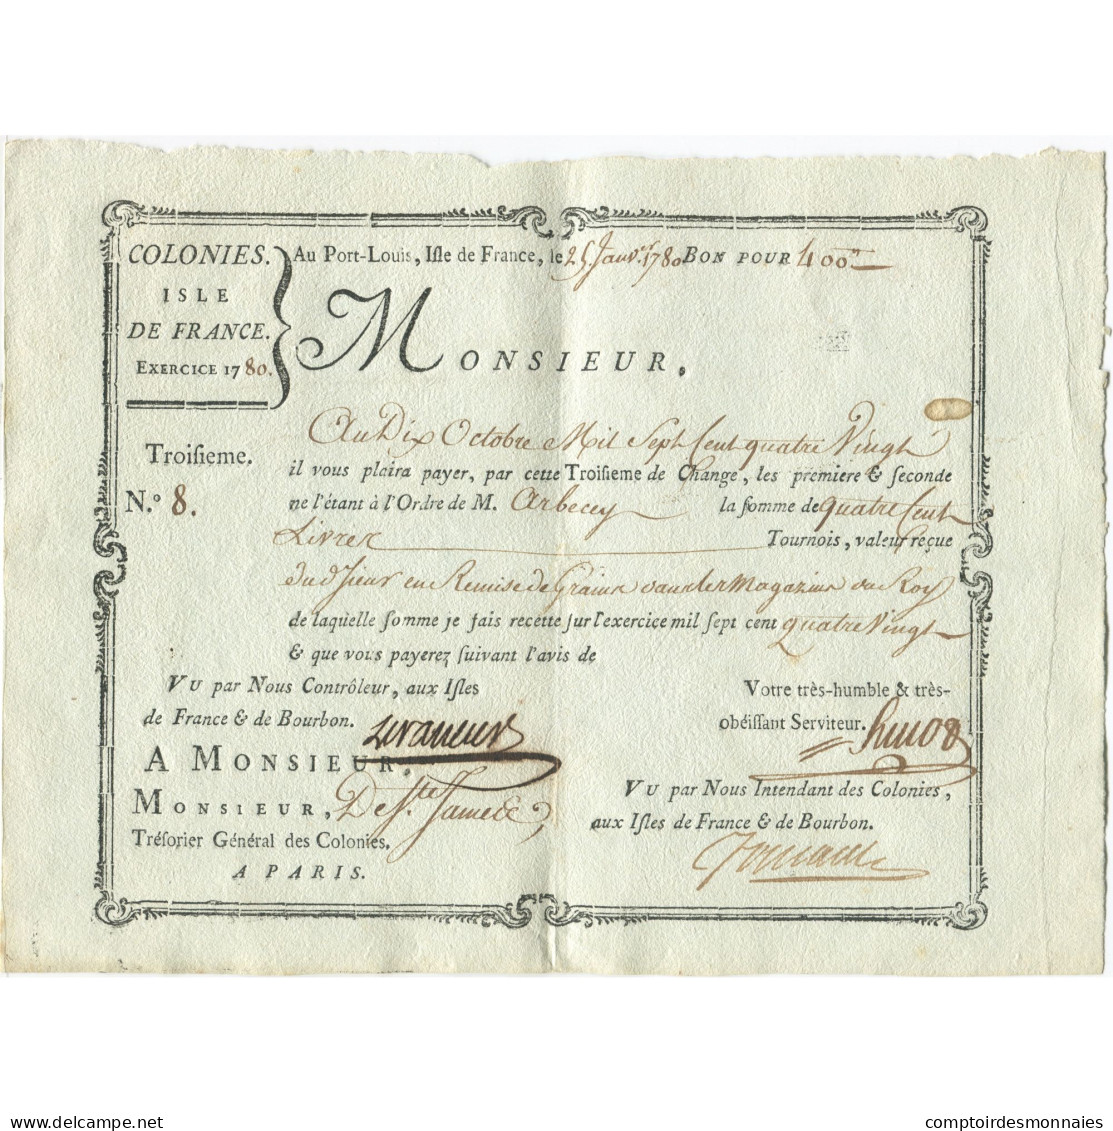 COLONIES.
ISLE
DE FRANCE.
EXERCICE 1780.
Au Port-Louis, Iſle de France, le 25 Janv.r 1780 BON POUR 400 tt
MONSIEUR,
Troiſieme.
N.º 8.
Au Dix Octobre Mil Sept Cent quatre Vingt
il vous plaira payer, par cette Troiſieme de Change, les premiere & ſeconde
ne l'étant à l'Ordre de M. Arbecey la ſomme de quatre Cent
Livres Tournois, valeur reçue
du d. Sieur en Remise de Grains dans les Magazins du Roy
de laquelle ſomme je fais recette ſur l'exercice mil ſept cent quatre Vingt
& que vous payerez ſuivant l'avis de
VU par Nous Contrôleur, aux Iſles
de France & de Bourbon.
Votre très-humble & très-
obéiſſant Serviteur.
A MONSIEUR,
MONSIEUR, De Ste James
Tréſorier Général des Colonies.
A PARIS.
VU par Nous Intendant des Colonies,
aux Iſles de France & de Bourbon.
comptoirdesmonnaies